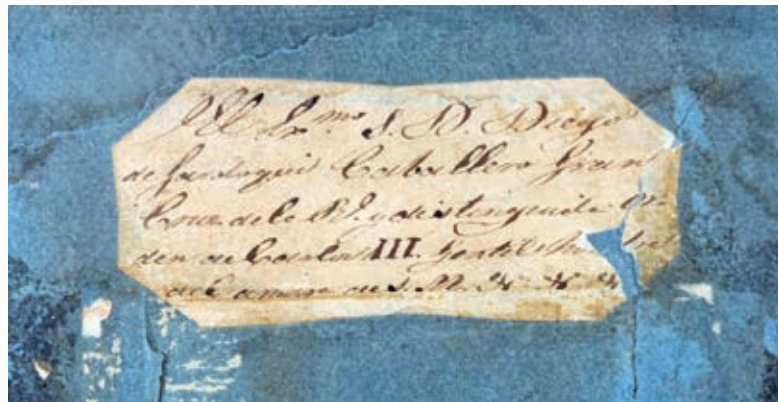 Al Ex.mo S. D. Diego
de Gardoqui Caballero Gran
Cruz de la Rl. y distinguida Or
den de Carlos III. Gentil hombre
de Camara de S. M. &c. &c. &c